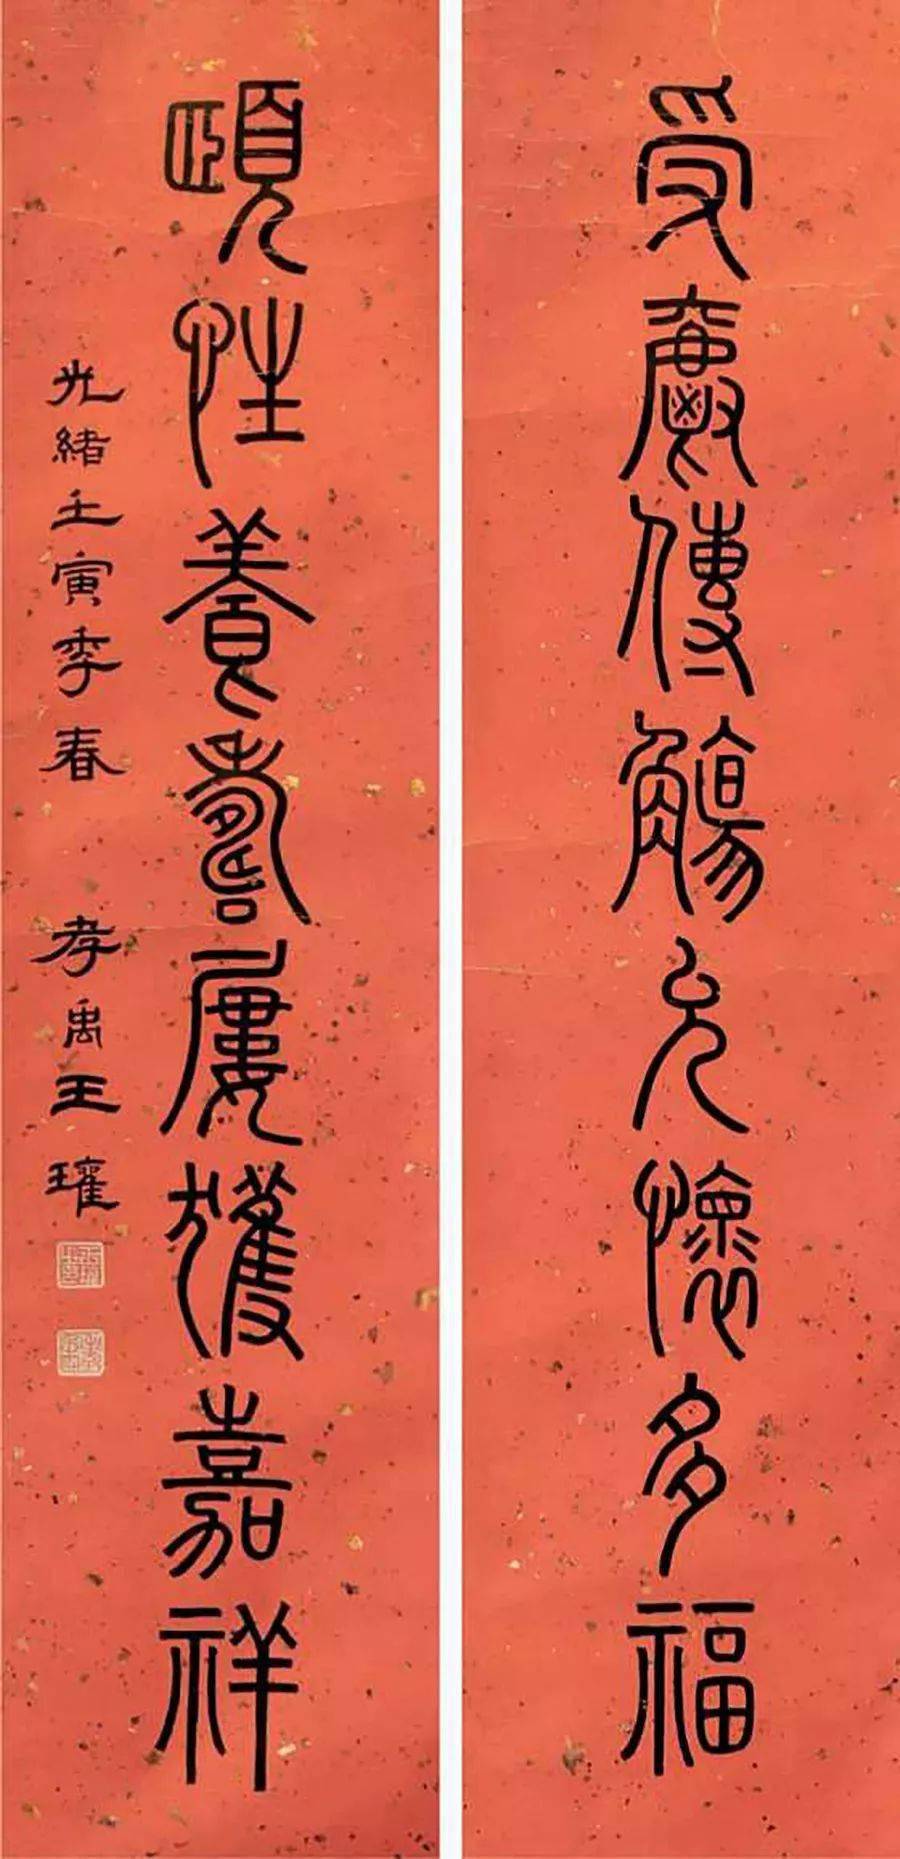 受爵傳觴允懷多福
頤性養壽屢獲嘉祥
光緒壬寅季春 孝禹王瓘